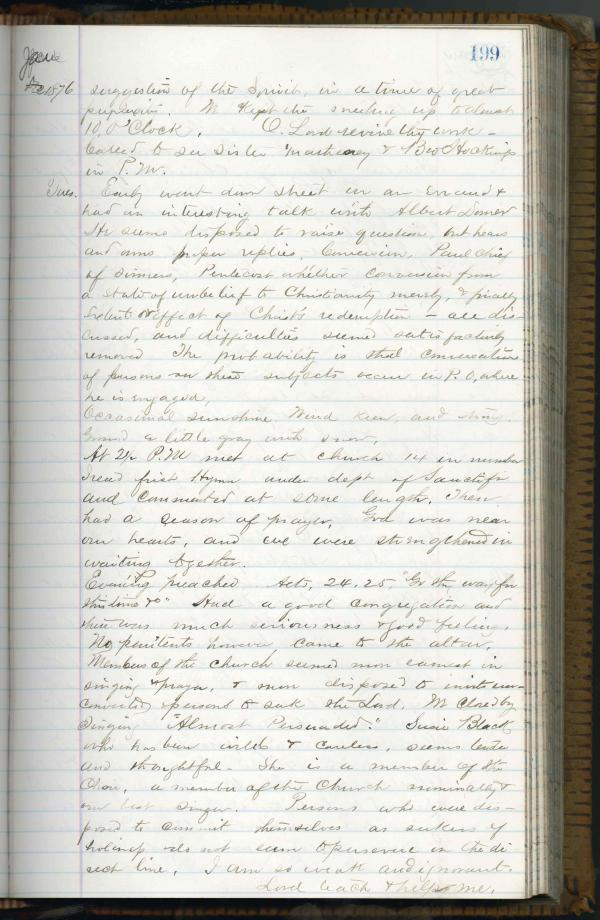 199
1876
suggestion of the Spirit, in a time of great
perplexity. M Kept the meeting up to almost
10, O'Clock. O. Lord revive thy work –
Called to see Sister & Bro Hockings
in P.M.
Tues. Early went down street on an errand &
had an interesting talk with Albert
He seems disposed to raise question, but hears
and owns proper replies, Conversion, Paul chief
of Sinners, Pentecost whether conversion from
a state of unbelief to Christianity merely, & finally
Extent & effect of Christ's redemption – are dis-
cussed, and difficulties seemed satisfactorily
removed The probability is that conversation
of persons on these subjects occur in P.O, where
he is engaged,
Occasional sunshine, Wind keen, and strong.
Ground a little gray with snow,
At 2½ P.M met at church 14 in number
I read first Hymn under dept of Sanctifn
and commented at some length, Then
had a season of prayer, God was near
our hearts, and we were strengthened in
waiting together.
Evening preached Acts, 24.25, "Go thy way for
this time &c" Had a good congregation and
there was much seriousness & good feeling,
No penitents however came to the altar,
Members of the church seemed more earnest in
singing & prayer, & more disposed to invite un-
converted persons to seek the Lord, M closed by
Singing "Almost Persuaded." Susie Black
who has been wild & careless, seems tender
and thoughtful – She is a member of the
Choir, a member of the Church nominally &
our best singer. Persons who were dis-
posed to commit themselves as seekers of
holiness do not seem to persevere in the di-
rect line, I am so weak and ignorant.
Lord teach & help me.